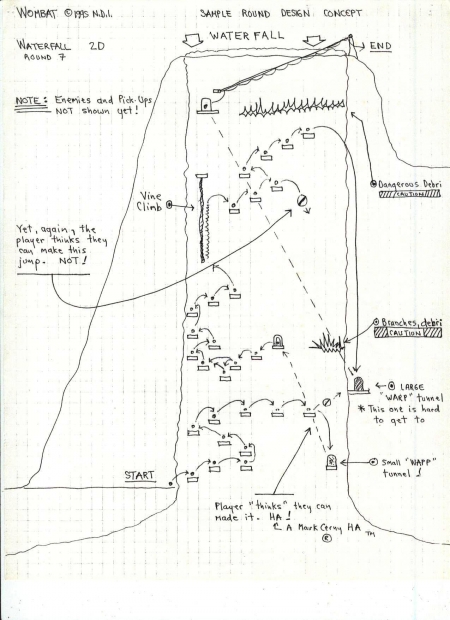 WOMBAT ©1995 N.D.I.
SAMPLE ROUND DESIGN CONCEPT
WATERFALL 2D
ROUND 7
WATERFALL
END
NOTE: Enemies and Pick-Ups
NOT shown yet!
Dangerous Debri
CAUTION
Vine
Climb
Yet, again, the
player thinks they
can make this
jump. NOT!
Branches, debri
CAUTION
LARGE
"WARP" tunnel
* This one is hard
to get to
Small "WARP"
tunnel!
START
Player "thinks" they can
made it. HA!
A Mark Cerny HA TM
®